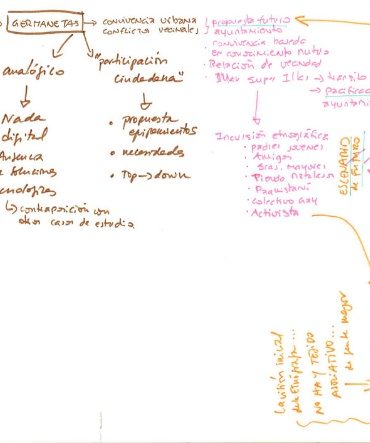 GERMANETAS
CONVIVENCIA URBANA
CONFLICTOS VECINALES
propuesta futuro
ayuntamiento
convivencia basada
en conocimiento mutuo
• Relación de vecindad
Super Illes → tránsito
→ pacificac
ayuntami
analógico
"participación
ciudadana"
Nada
digital
Ausencia
soluciones
tecnológicas
↳ contraposición con
otros casos de estudio
• propuesta
equipamientos
• necesidades
• Top → down
Incursión etnográfica
• padres jóvenes
• Amigos
• Sras. mayores
• Tienda
• Paquistaní
• colectivo gay
• Activista
ESCENARIO
de FUTURO
La visión inicial
de la Etnógrafa...
NO HAY TEJIDO
ASOCIATIVO...
de gente mayor